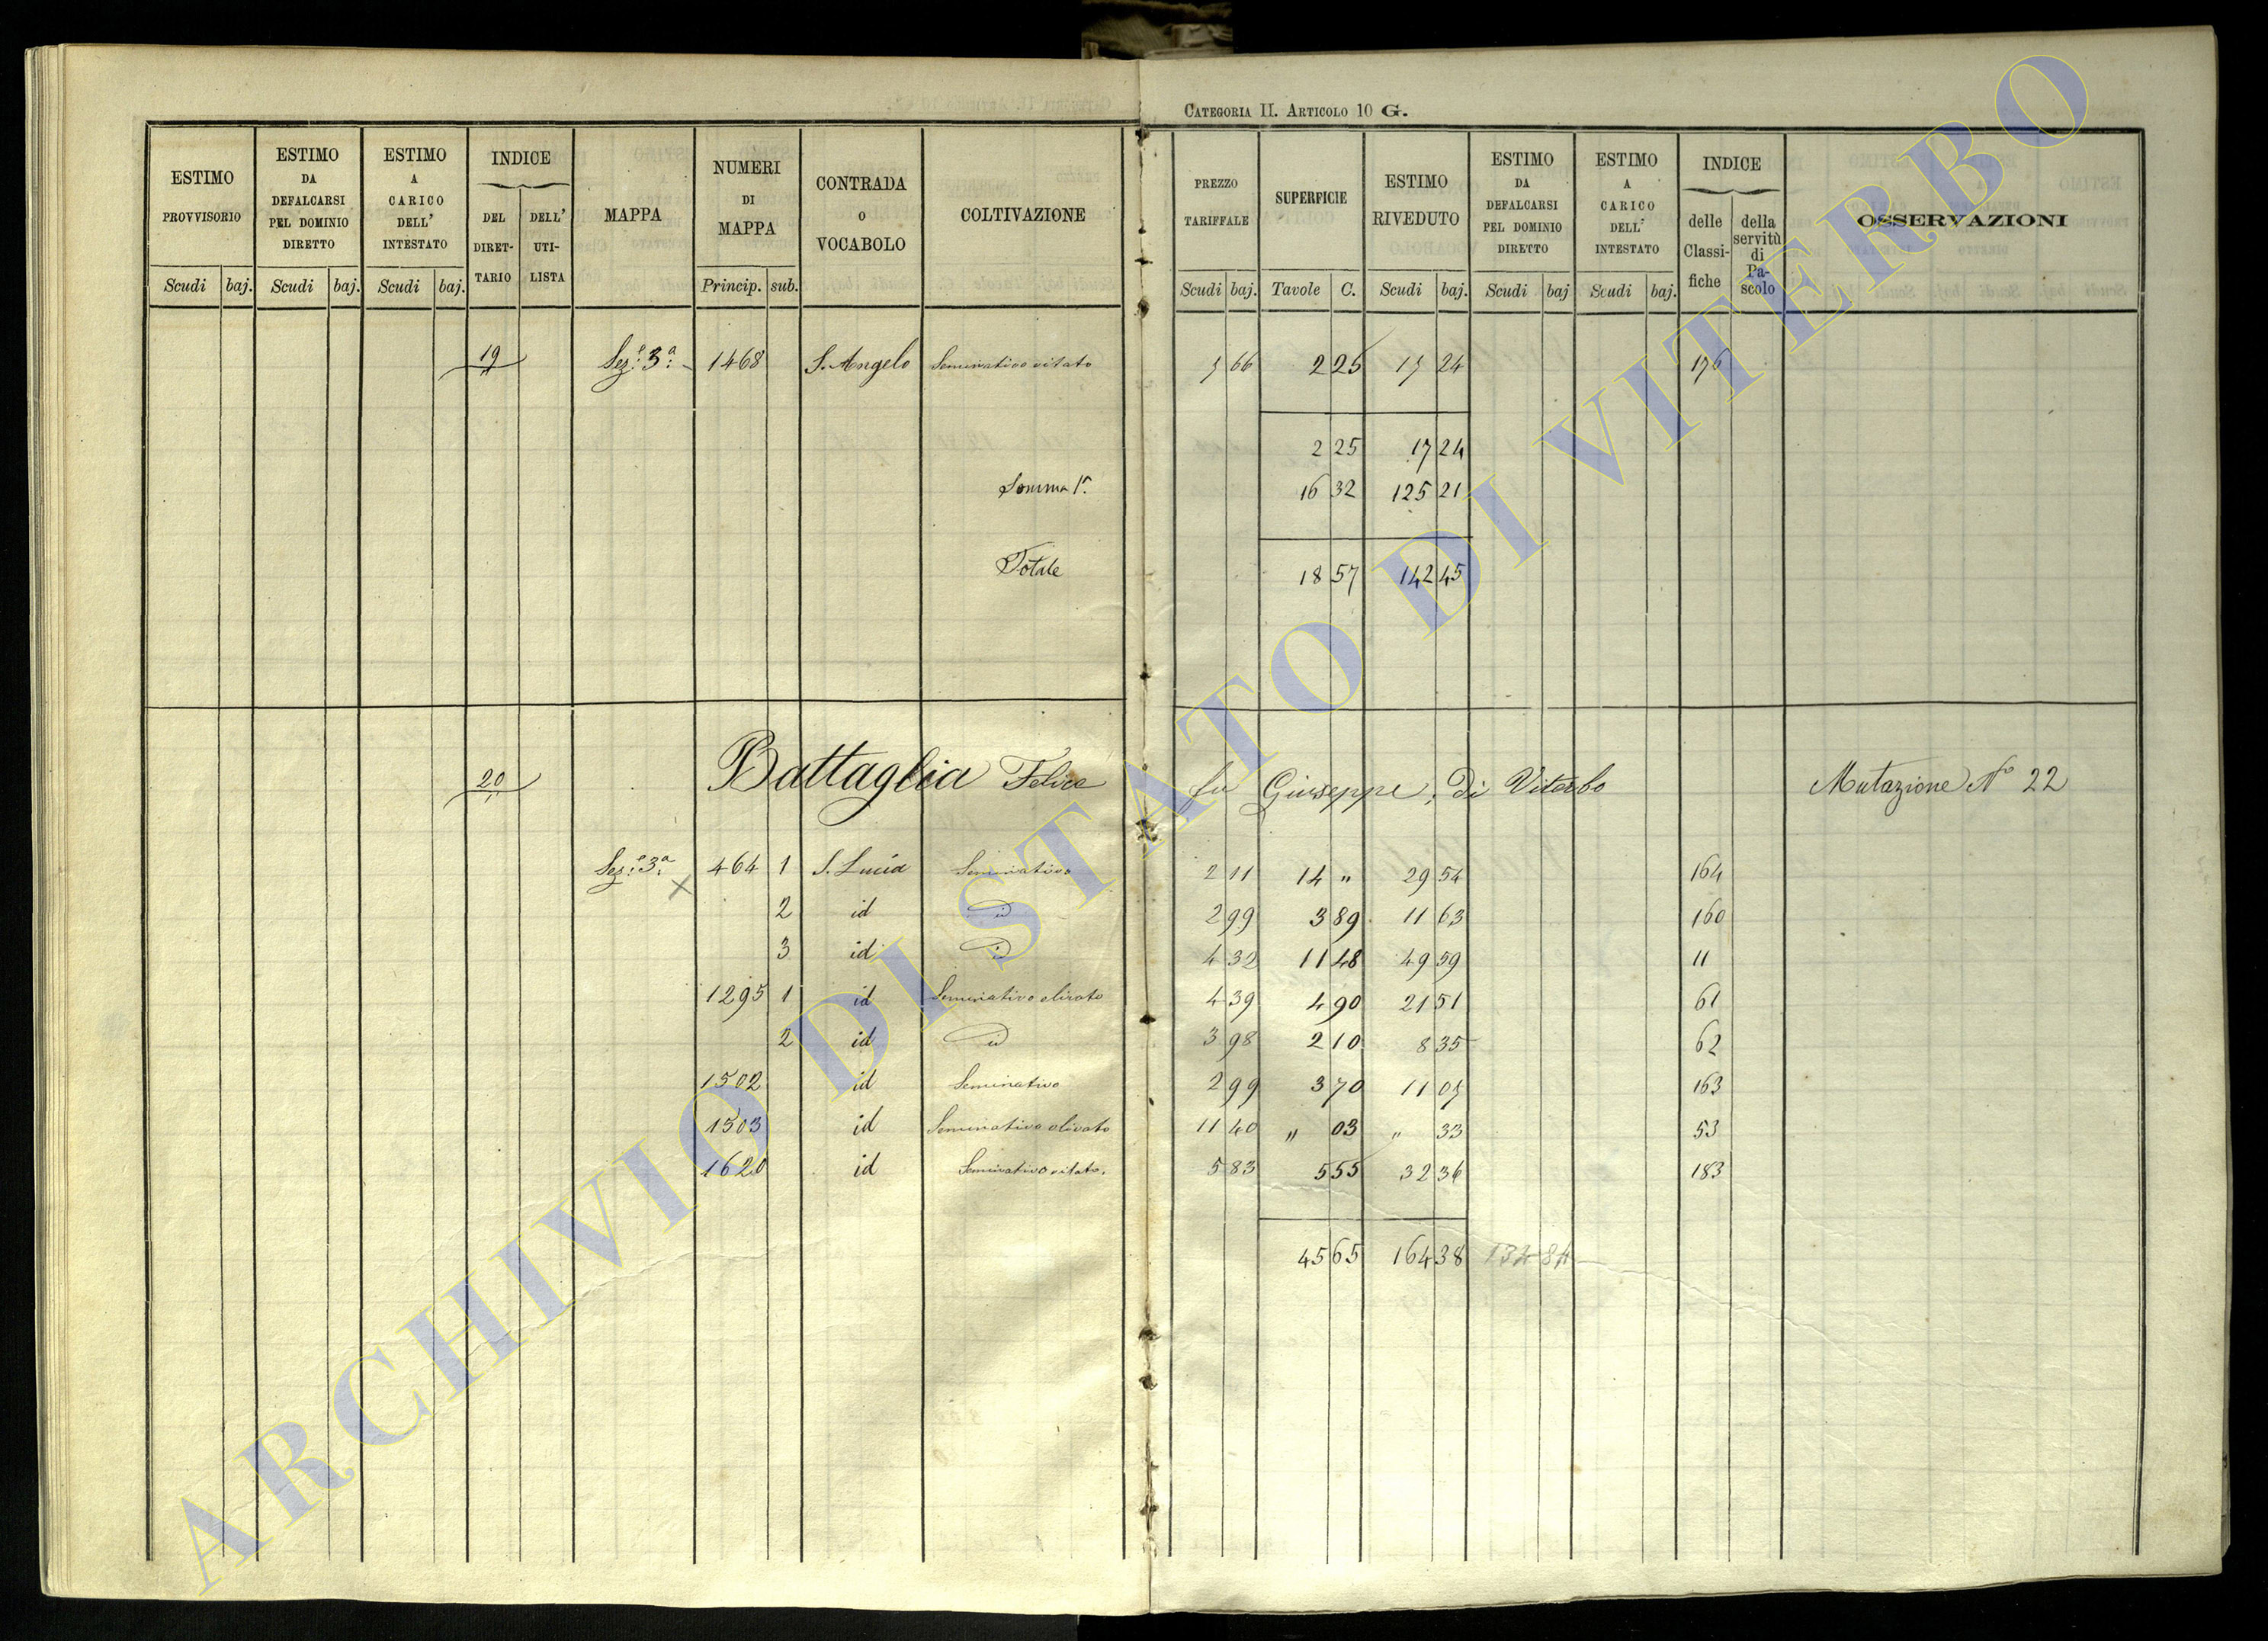 CATEGORIA II. ARTICOLO 10 G.
ESTIMO PROVVISORIO Scudi baj.
ESTIMO DA DEFALCARSI PEL DOMINIO DIRETTO Scudi baj.
ESTIMO A CARICO DELL' INTESTATO Scudi baj.
INDICE DEL DIRETTARIO DELL' UTILISTA
MAPPA
NUMERI DI MAPPA Princip. sub.
CONTRADA O VOCABOLO
COLTIVAZIONE
PREZZO TARIFFALE Scudi baj.
SUPERFICIE Tavole C.
ESTIMO RIVEDUTO Scudi baj.
ESTIMO DA DEFALCARSI PEL DOMINIO DIRETTO Scudi baj
ESTIMO A CARICO DELL' INTESTATO Scudi baj.
INDICE delle Classifiche della servitù di Pascolo
OSSERVAZIONI
19 Sez.e 3a 1468 S. Angelo Seminativo vitato 66 2 25 24 176
2 25 17 24
Somma 16 32 125 21
Totale 18 57 142 45
20 Battaglia Felice fu Giuseppe, di Viterbo Mutazione No 22
Sez.e 3a 464 1 S. Lucia Seminativo 2 11 14 " 29 54 164
2 id id 2 99 3 89 11 63 160
3 id id 4 32 11 48 49 59 11
1295 1 id Seminativo olivato 4 39 4 90 21 51 61
2 id id 3 98 2 10 8 35 62
1502 id Seminativo 2 99 3 70 11 05 163
1503 id Seminativo olivato 11 40 " 03 " 33 53
1620 id Seminativo vitato. 5 83 5 55 32 36 183
45 65 164 38 134 84
ARCHIVIO DI STATO DI VITERBO